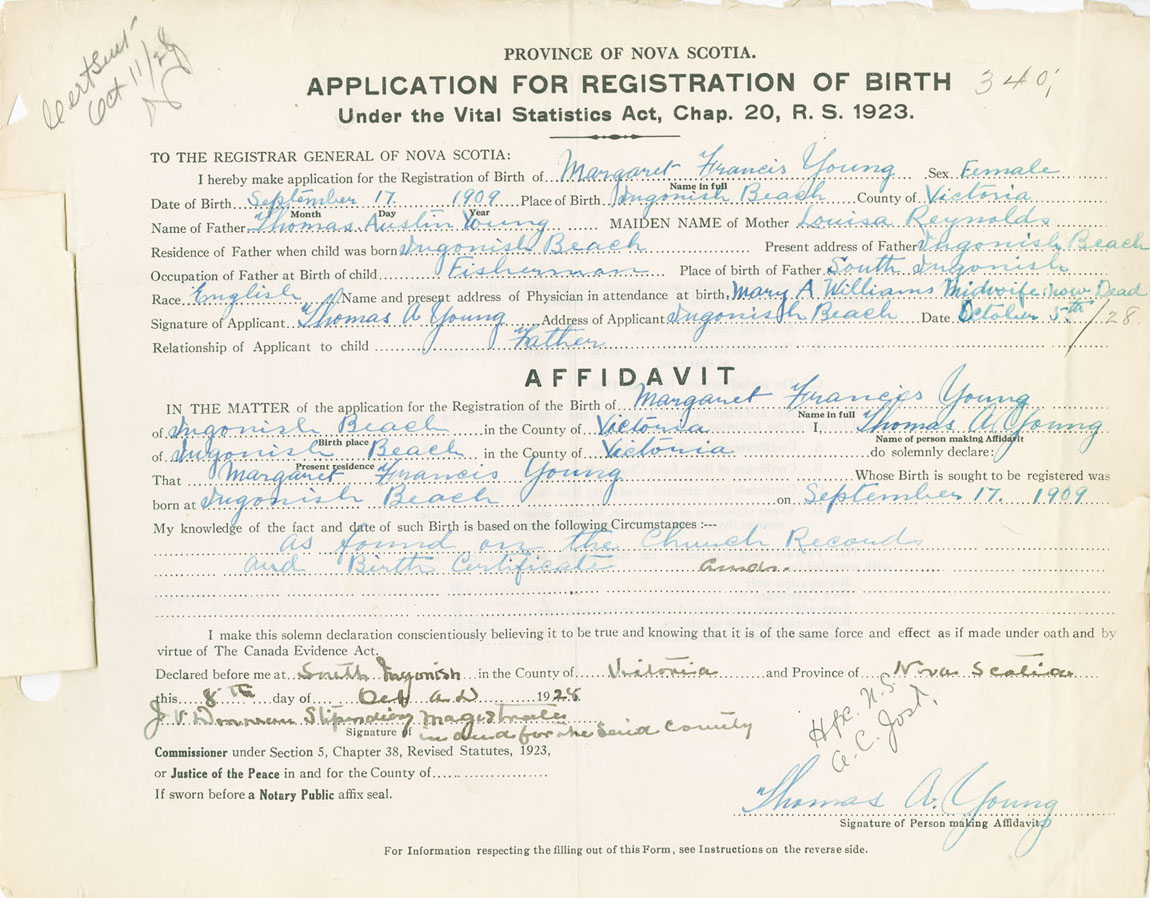 Cert Sent
Oct 11/28
PROVINCE OF NOVA SCOTIA.
APPLICATION FOR REGISTRATION OF BIRTH 340
Under the Vital Statistics Act, Chap. 20, R. S. 1923.
TO THE REGISTRAR GENERAL OF NOVA SCOTIA:
I hereby make application for the Registration of Birth of Margaret Francis Young Sex Female
Name in full
Date of Birth September 17 1909 Place of Birth Ingonish Beach County of Victoria
Month Day Year
Name of Father Thomas Austin Young MAIDEN NAME of Mother Louisa Reynolds
Residence of Father when child was born Ingonish Beach Present address of Father Ingonish Beach
Occupation of Father at Birth of child Fisherman Place of birth of Father South Ingonish
Race English Name and present address of Physician in attendance at birth, Mary A Williams Midwife now Dead
Signature of Applicant Thomas A Young Address of Applicant Ingonish Beach Date October 5th /28.
Relationship of Applicant to child Father
AFFIDAVIT
IN THE MATTER of the application for the Registration of the Birth of Margaret Francis Young
Name in full
of Ingonish Beach in the County of Victoria I, Thomas A. Young
Birth place Name of person making Affidavit
of Ingonish Beach in the County of Victoria do solemnly declare:
Present residence
That Margaret Francis Young Whose Birth is sought to be registered was
born at Ingonish Beach on September 17. 1909
My knowledge of the fact and date of such Birth is based on the following Circumstances :---
as found on the Church Records
and Births Certificate
I make this solemn declaration conscientiously believing it to be true and knowing that it is of the same force and effect as if made under oath and by
virtue of The Canada Evidence Act.
Declared before me at South Ingonish in the County of Victoria and Province of Nova Scotia
this 8th day of Oct A D 1928
J. V. Stipendiary Magistrate
Signature of in and for the said County
Hfx. N.S.
A. C. Jost.
Commissioner under Section 5, Chapter 38, Revised Statutes, 1923,
or Justice of the Peace in and for the County of
If sworn before a Notary Public affix seal.
Thomas A. Young
Signature of Person making Affidavit
For Information respecting the filling out of this Form, see Instructions on the reverse side.